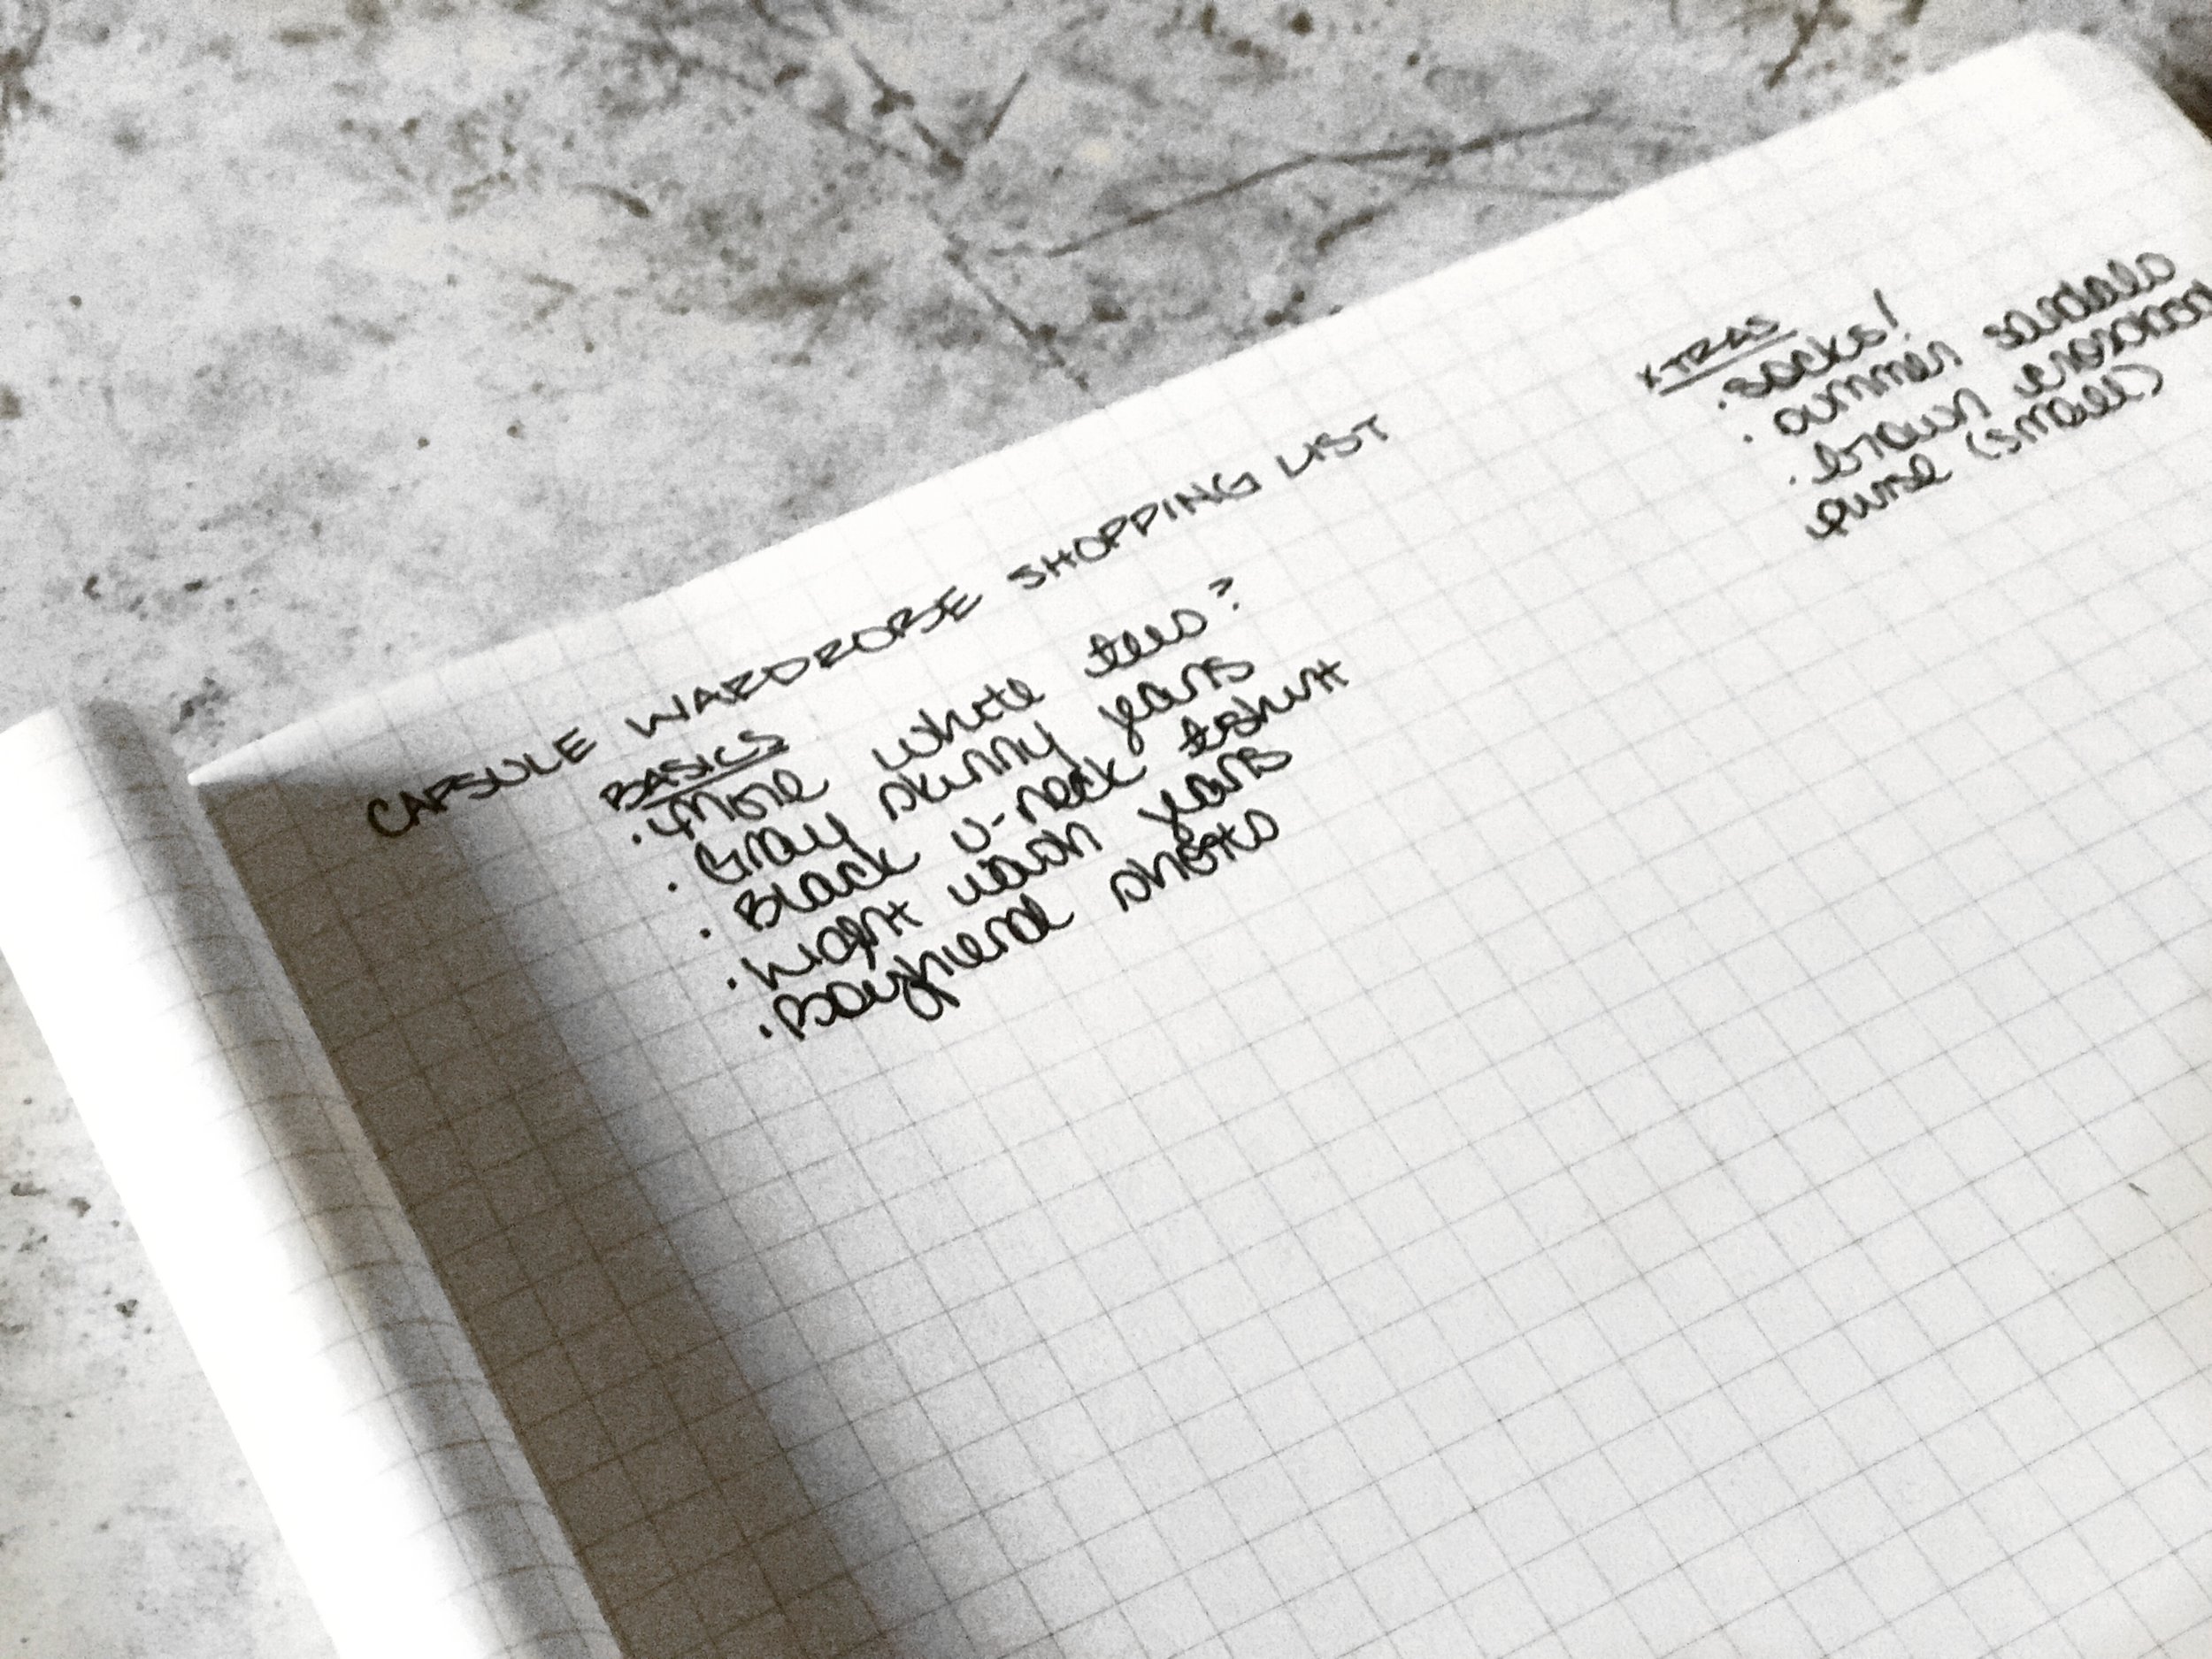 CAPSULE WARDROBE SHOPPING LIST
BASICS
· more white tees?
· Gray skinny jeans
· Black v-neck tshirt
· Light wash jeans
· Boyfriend shorts
XTRAS
· socks!
· summer sandals
· brown crossbody
purse (small)